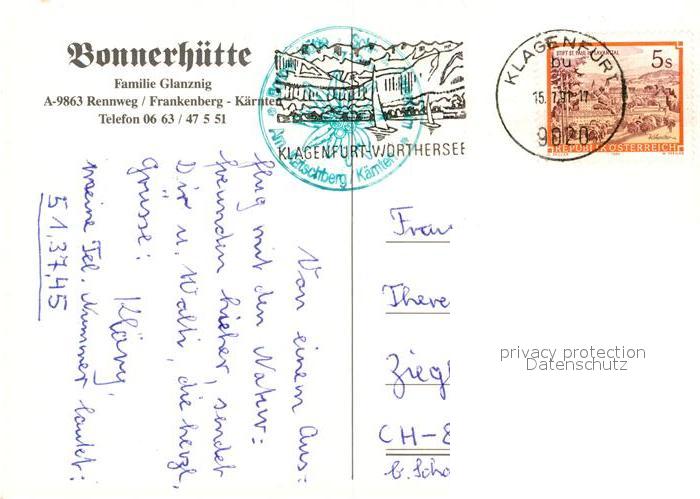 Bonnerhütte
Familie Glanznig
A-9863 Rennweg / Frankenberg - Kärnten
Telefon 06 63 / 47 5 51
KLAGENFURT-WÖRTHERSEE
Katschberg / Kärnten
KLAGENFURT
15.7.91-17
bu
9020
STIFT ST. PAUL IM LAVANTTAL
5s
REPUBLIK ÖSTERREICH
Von einem Aus=
flug mit den Natur=
freunden hieher, sendet
Dir u. Walti, die herzl.
Grüsse:
Kläry,
meine Tel. Nummer lautet:
51,37,45
Frau
There
Ziegl
CH-8
b. Scho
privacy protection
Datenschutz